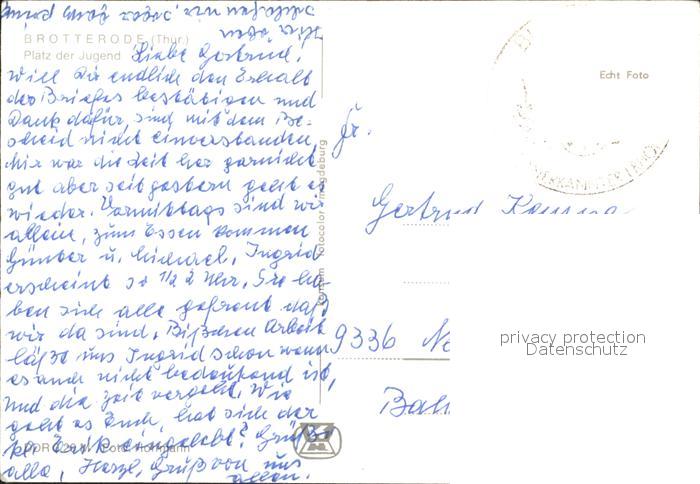 BROTTERODE (Thür.)
Platz der Jugend
Liebe Gertrud,
will Dir endlich den Erhalt
des Briefes bestätigen und
Dank dafür, sind mit dem Be-
scheid nicht einverstanden,
Mir war die Zeit her garnicht
gut aber seit gestern geht es
wieder. Vormittags sind wir
allein, zum Essen kommen
Günter u. Michael, Ingrid
erscheint so 1/2 2 Uhr, Sie ha-
ben sich alle gefreut daß
wir da sind. Bißchen Arbeit
läßt uns Ingrid schon wenn
es auch nicht bedeutend ist,
und die Zeit vergeht, Wie
geht es Euch, hat sich der
Erik eingelebt? Grüße
alle, Herzl, Gruß von uns
allen.
Hier oben
schlafen wir,
Echt Foto
Fr.
Gertrud
9336
privacy protection
Datenschutz
fotocolor magdeburg
Foto: Hoffmann